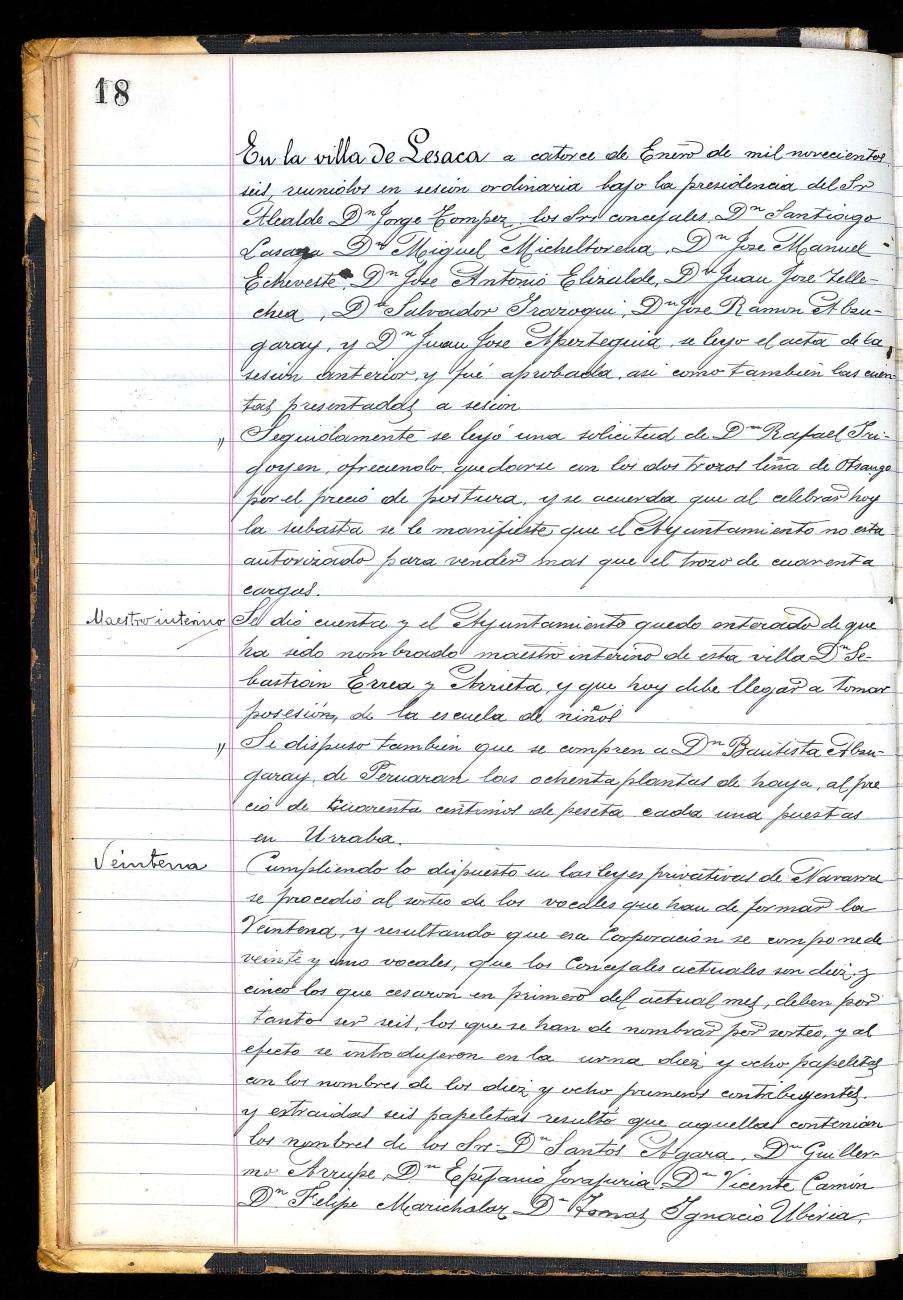 18
En la villa de Lesaca a catorce de Enero de mil novecientos
seis, reunidos en sesion ordinaria bajo la presidencia del Sr
Alcalde Dn Jorge Tompez, los Srs concejales, Dn Santiago
Lasaga Dn Miguel Micheltorena, Dn Jose Manuel
Echeveste, Dn Jose Antonio Elizalde, Dn Juan Jose Telle-
chea, Dn Salvador Irazoqui, Dn Jose Ramon Abzu-
garay, y Dn Juan Jose Apertequia, se leyo el acta de la
sesion anterior, y fué aprobada, asi como tambien las cuen-
tas presentadas a sesion
" Seguidamente se leyó una solicitud de Dn Rafael Iri-
goyen, ofreciendo, quedarse con los dos trozos leña de Otsango
por el precio de postura, y se acuerda que al celebrar hoy
la subasta se le manifieste que el Ayuntamiento no esta
autorizado para vender mas que el trozo de cuarenta
cargas.
Maestro interino Se dio cuenta y el Ayuntamiento quedo enterado de que
ha sido nombrado maestro interino de esta villa Dn Se-
bastian Errea y Arrieta, y que hoy debe llegar a tomar
posesión, de la escuela de niños
" Se dispuso tambien que se compren a Dn Bautista Abzu-
garay, de Peruaran las ochenta plantas de haya, al pre
cio de cuarenta centimos de peseta cada una puestas
en Urraba.
Veintena Cumpliendo lo dispuesto en las leyes privativas de Navarra
se procedio al sorteo de los vocales que han de formar la
Veintena, y resultando que esa Corporación se compone de
veinte y uno vocales, que los Concejales actuales son diez, y
cinco los que cesaron en primero del actual mes, deben por
tanto ser seis, los que se han de nombrar por sorteo, y al
efecto se introdujeron en la urna diez y ocho papeletas
con los nombres de los diez y ocho primeros contribuyentes.
y extraidas seis papeletas resultó que aquellas contenian
los nombres de los Srs Dn Santos Agara, Dn Guiller-
mo Arrupe, Dn Epifanio Jorajuria, Dn Vicente Camón
Dn Felipe Marichalar Dn Tomas Ignacio Ubiria,